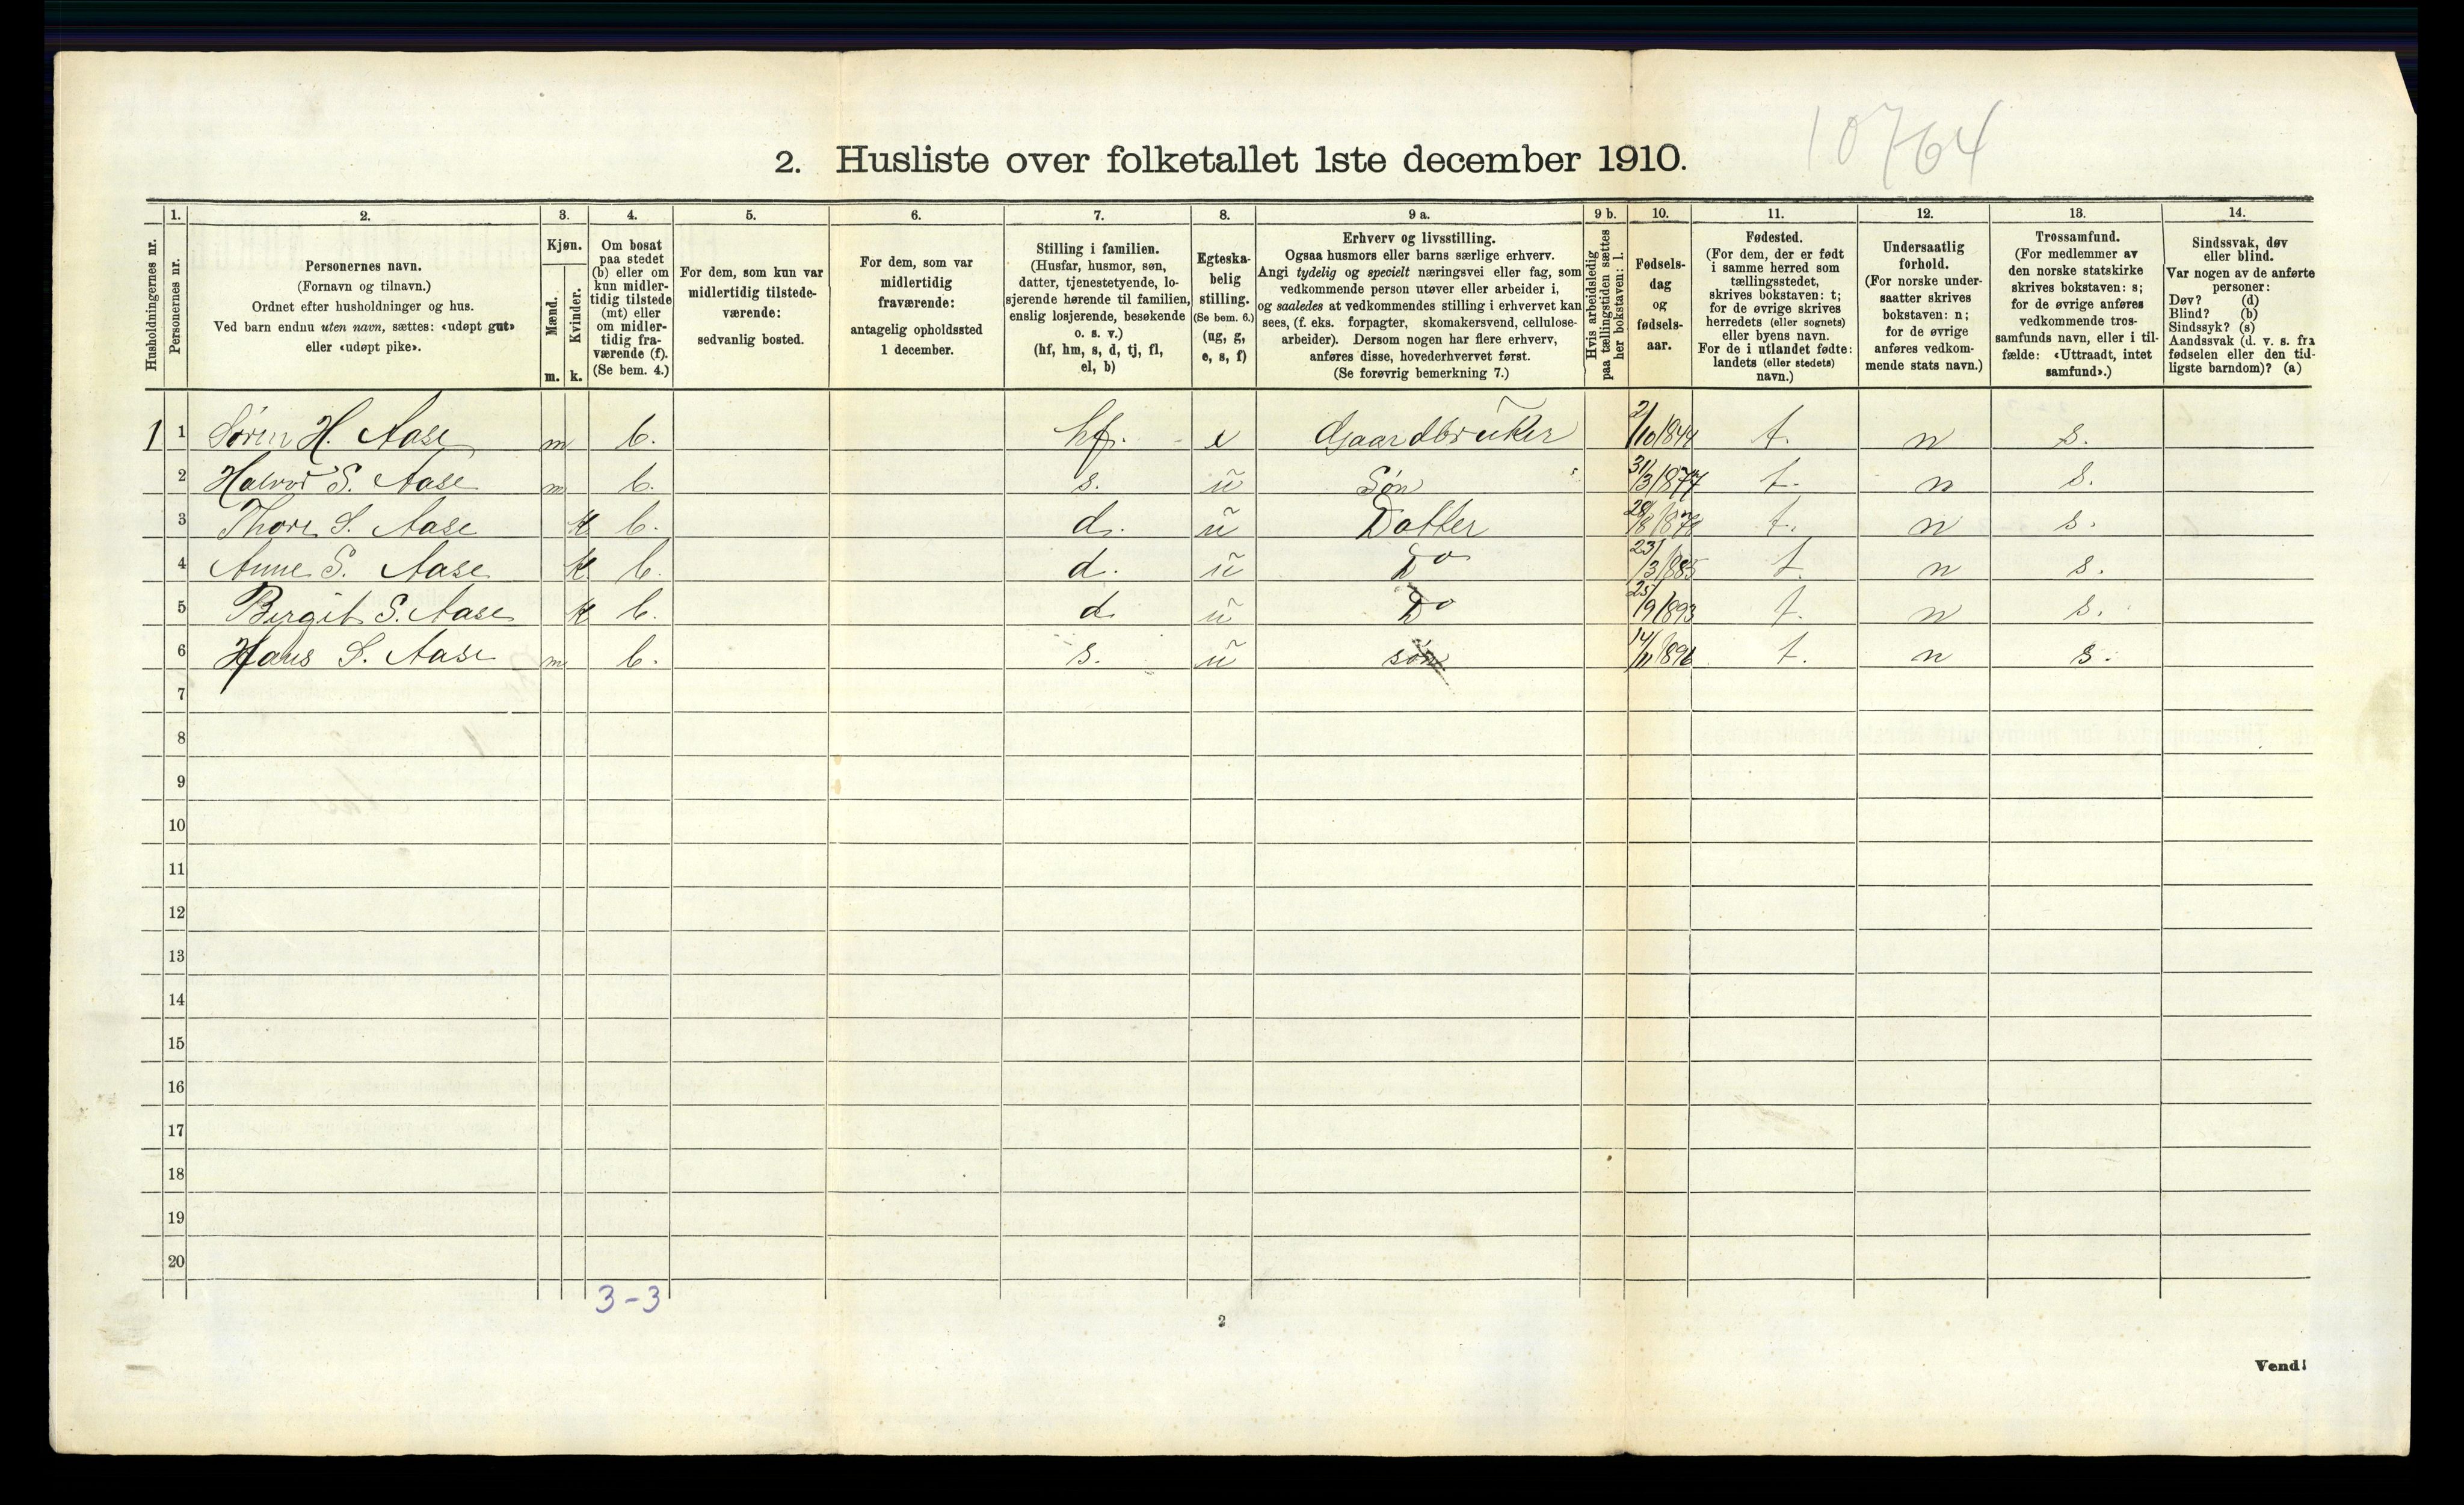 10764
2. Husliste over folketallet 1ste december 1910.
Husholdningernes nr.
1. Personernes nr.
2. Personernes navn.
(Fornavn og tilnavn.)
Ordnet efter husholdninger og hus.
Ved barn endnu uten navn, sættes: «udøpt gut»
eller «udøpt pike».
3. Kjøn.
Mænd. m.
Kvinder. k.
4. Om bosat
paa stedet
(b) eller om
kun midler-
tidig tilstede
(mt) eller
om midler-
tidig fra-
værende (f).
(Se bem. 4.)
5. For dem, som kun var
midlertidig tilstede-
værende:
sedvanlig bosted.
6. For dem, som var
midlertidig
fraværende:
antagelig opholdssted
1 december.
7. Stilling i familien.
(Husfar, husmor, søn,
datter, tjenestetyende, lo-
sjerende hørende til familien,
enslig losjerende, besøkende
o. s. v.)
(hf, hm, s, d, tj, fl,
el, b)
8. Egteska-
belig
stilling.
(Se bem. 6.)
(ug, g,
e, s, f)
9 a. Erhverv og livsstilling.
Ogsaa husmors eller barns særlige erhverv.
Angi tydelig og specielt næringsvei eller fag, som
vedkommende person utøver eller arbeider i,
og saaledes at vedkommendes stilling i erhvervet kan
sees, (f. eks. forpagter, skomakersvend, cellulose-
arbeider). Dersom nogen har flere erhverv,
anføres disse, hovederhvervet først.
(Se forøvrig bemerkning 7.)
9 b. Hvis arbeidsledig
paa tællingstiden sættes
her bokstaven: l.
10. Fødsels-
dag
og
fødsels-
aar.
11. Fødested.
(For dem, der er født
i samme herred som
tællingsstedet,
skrives bokstaven: t;
for de øvrige skrives
herredets (eller sognets)
eller byens navn.
For de i utlandet fødte:
landets (eller stedets)
navn.)
12. Undersaatlig
forhold.
(For norske under-
saatter skrives
bokstaven: n;
for de øvrige
anføres vedkom-
mende stats navn.)
13. Trossamfund.
(For medlemmer av
den norske statskirke
skrives bokstaven: s;
for de øvrige anføres
vedkommende tros-
samfunds navn, eller i til-
fælde: «Uttraadt, intet
samfund».)
14. Sindssvak, døv
eller blind.
Var nogen av de anførte
personer:
Døv? (d)
Blind? (b)
Sindssyk? (s)
Aandssvak (d. v. s. fra
fødselen eller den tid-
ligste barndom)? (a)
1 1 Søren H. Aase m b. hf. e Gaardbruker 2/10 1844 t. n s.
2 Halvor S. Aase m b. s. u Søn 31/3 1877 t. n s.
3 Thore S. Aase k b. d. u Datter 28/8 t. n s.
4 Anne S. Aase k b. d. u Do 23/3 1885 t. n s.
5 Birgit S. Aase k b. d u Do 25/9 1893 t. n s.
6 Hans S. Aase m b. s. u søn 14/11 1896 t. n s.
7
8
9
10
11
12
13
14
15
16
17
18
19
20
3-3
2
Vend!